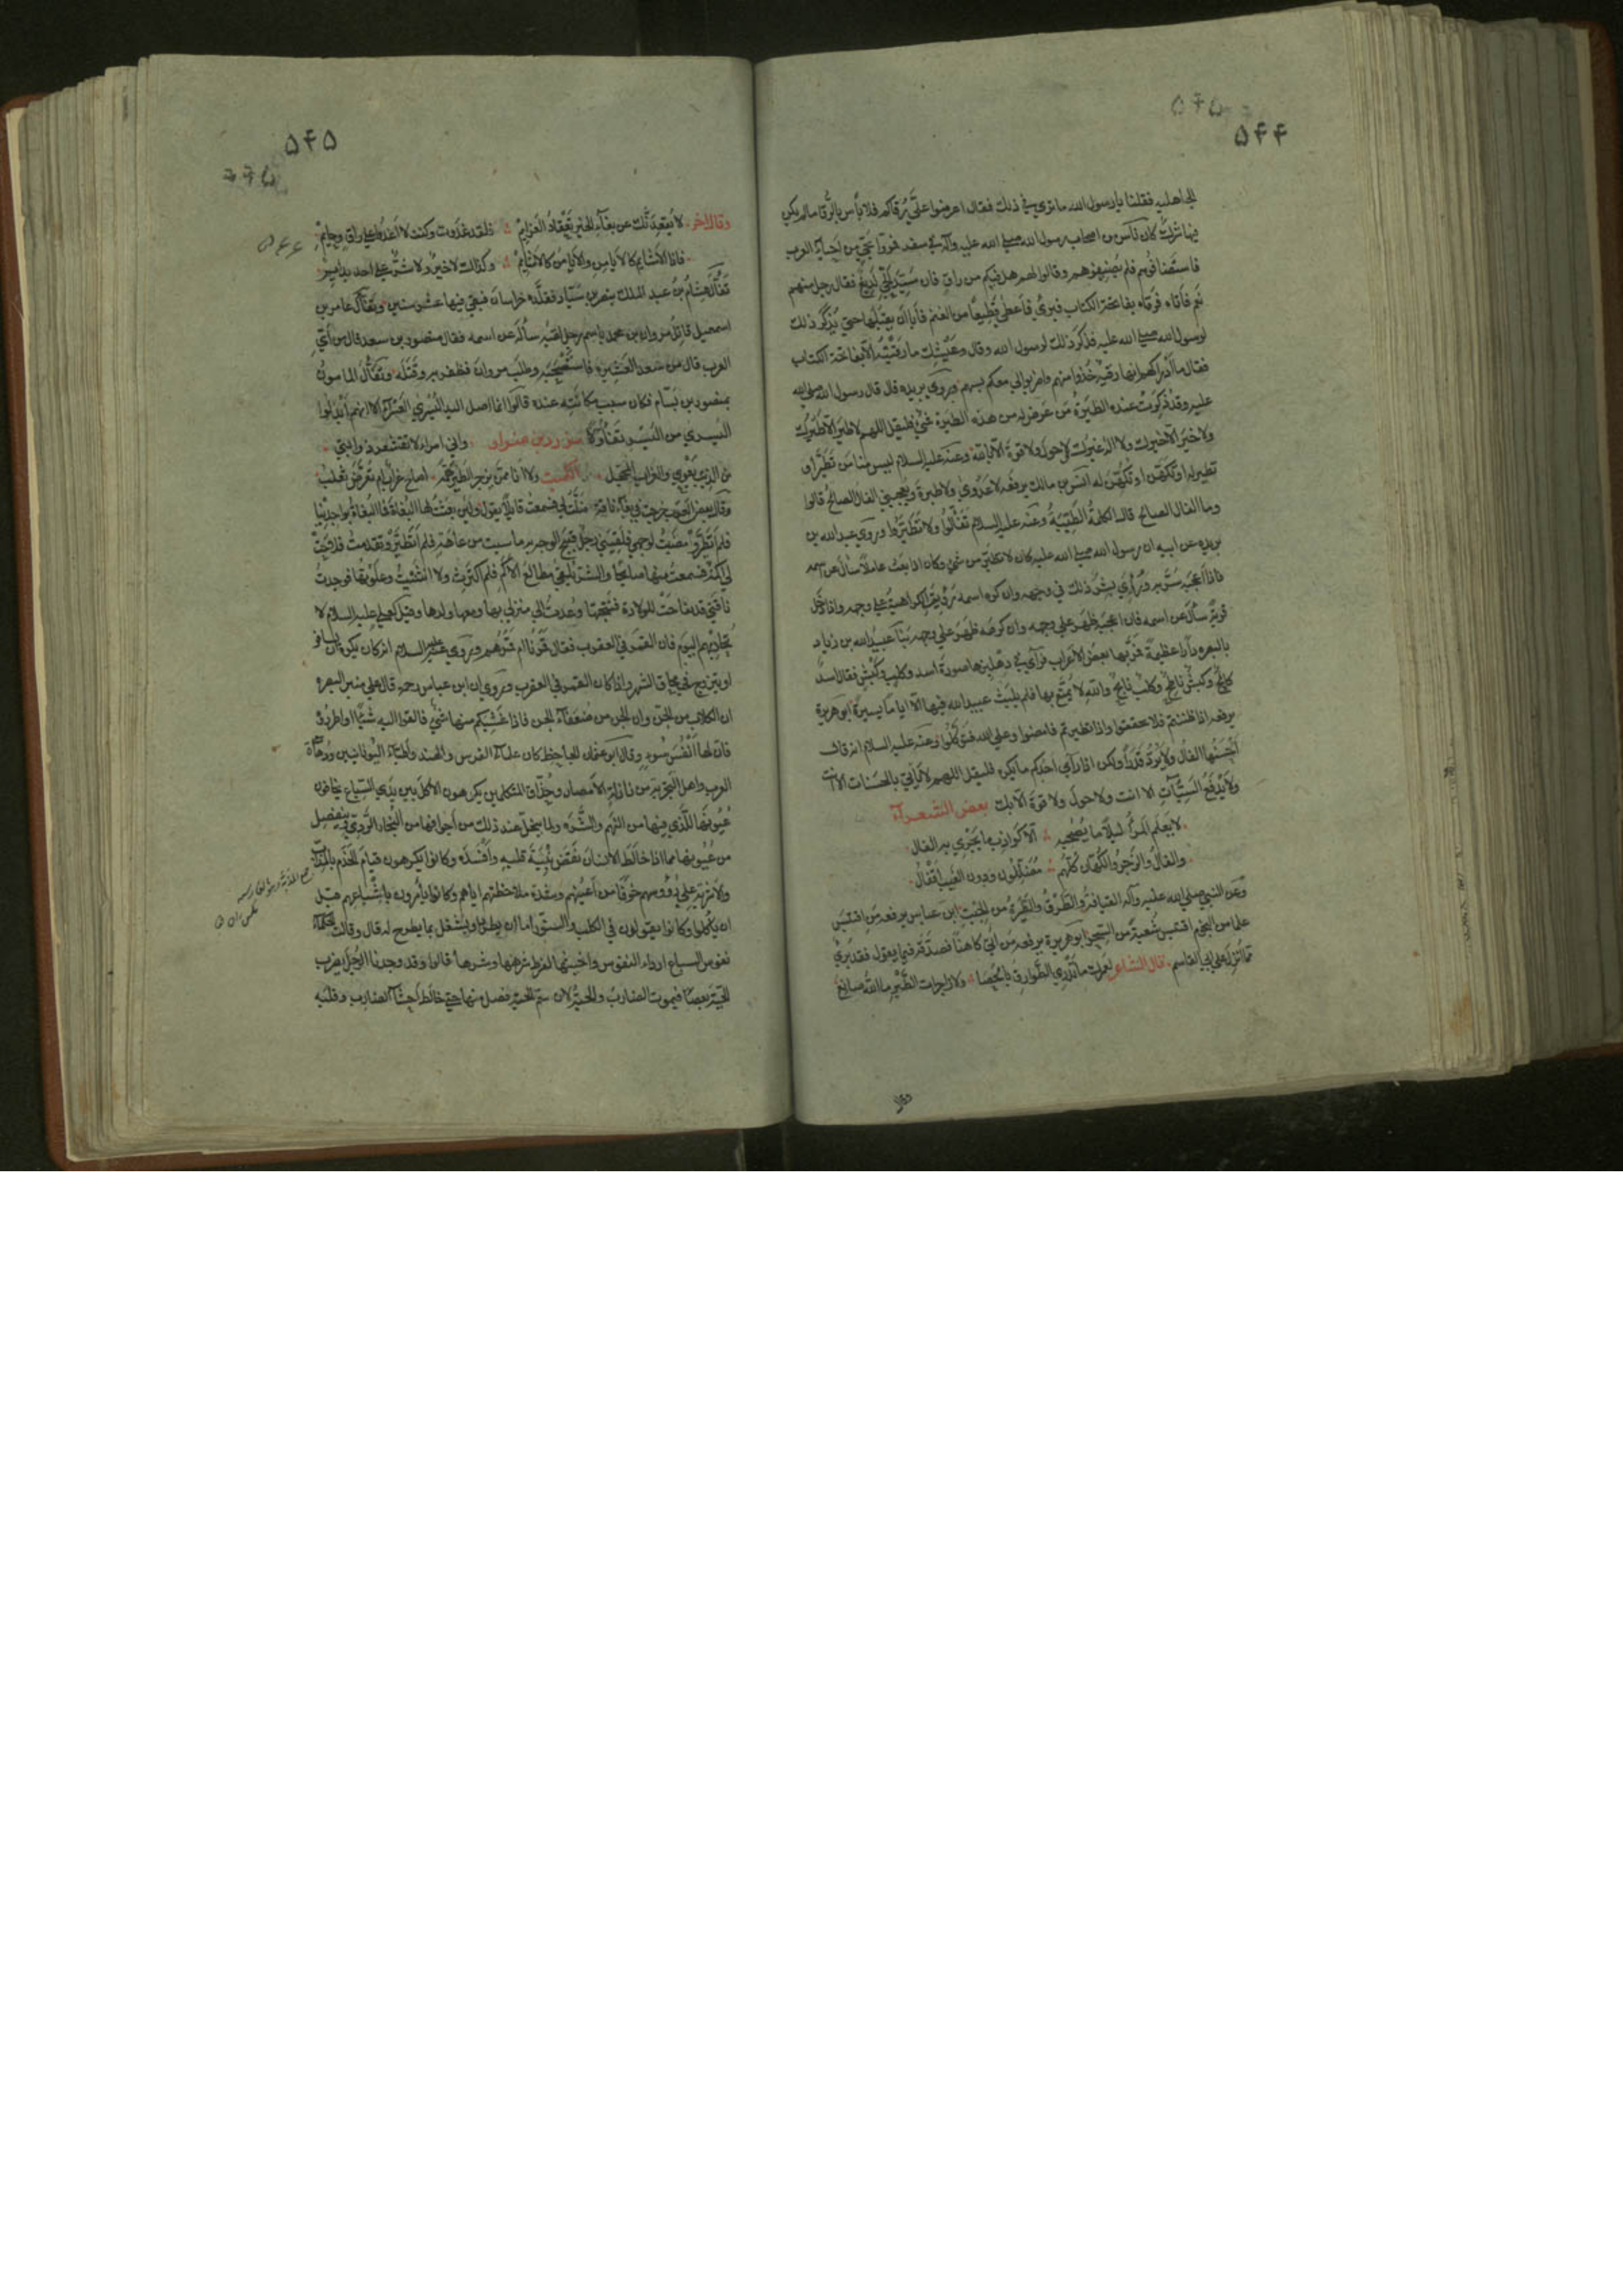 ۵۴۴
الجاهلية فقلنا يا رسول الله ما تري في ذلك فقال اعرضوا عليّ رُقاكم فلا بأس بالرُّقا ما لم يكن
فيها شرك كان ناس من اصحاب رسول الله صلي الله عليه وآله في سفر فمروا بحي من احياء العرب
فاستضافوهم فلم يُضيفوهم وقالوا لهم هل فيكم من راقٍ فان سيّد الحي لديغ فقال رجل منهم
نعم فأتاه فرقاه بفاتحة الكتاب فبرئ فاعطي قطيعًا من الغنم فأبا ان يقبلها حتي يذكر ذلك
لرسول الله صلي الله عليه فذكر ذلك لرسول الله وقال وعَيْشِك ما رقيته الّا بفاتحة الكتاب
فقال ما ادراكم انها رقية خُذوا منهم واضربوا لي معكم بسهم وروي بريده قال قال رسول الله صلي الله
عليه وقد ذُكِرَت عنده الطيرة من عرض له من هذه الطيرة شئ فليقل اللهم لا طير الا طيرك
ولا خير الا خيرك ولا اله غيرك لا حول ولا قوة الا بالله وعنه عليه السلام ليس منا من تطيّر او
تطير له او تكهّن او تُكهِّن له انس بن مالك يرفعه لا عدوي ولا طيرة ويعجبني الفال الصالح قالوا
وما الفال الصالح قال الكلمة الطيبة وعنه عليه السلام تفألوا ولا تطيّروا وروي عبد الله بن
بريده عن ابيه ان رسول الله صلي الله عليه كان لا يتطير من شئ وكان اذا بعث عاملًا سأل عن اسمه
فاذا اعجبه سُرّ به ورُأي بِشر ذلك في وجهه وان كره اسمه رُؤي الكراهية علي وجهه واذا دخل
قرية سأل عن اسمه فان اعجبه ظهر علي وجهه وان كرهه ظهر علي وجهه بنا عبيد الله بن زياد
بالبصره دارًا عظيمة فمرّ بها بعض الاعراب فرآي في دهليزها صورة اسد وكلب وكبش فقال اسدٌ
كالح وكبشٌ ناطح وكلبٌ نابح والله لا يُمتّع بها فلم يلبث عبيد الله فيها الّا اياما يسيرة ابو هريرة
يرفعه اذا ظننتم فلا تحققوا واذا تطيرتم فامضوا وعلي الله فتوكّلوا وعنه عليه السلام انه قال
احسنها الفال ولا يردّ قدرًا ولكن اذا رآي احدكم ما يكره فليقل اللهم لا يأتي بالحسنات الا انت
ولا يدفع السيئات الا انت ولا حول ولا قوة الّا بك بعض الشعراء
لا يعلم المرءُ ليلًا ما يُصبّحه الّا كواذب ما يجري به الفال
والفال والزجر والكهان كلهم مضلّلون ودون الغيب اقفال
وعن النبي صلي الله عليه وآله العيافة والطرق والطيرة من الجبت ابن عباس يرفعه من اقتبس
علما من النجوم اقتبس شعبة من السحر ابو هريرة يرفعه من اتي كاهنًا فصدّقه فيما يقول فقد بُرئ
مما انزل علي ابي القاسم قال الشاعر لعمرك ما تدري الطوارق بالحصا ولا زاجرات الطير ما الله صانع
وقال
۵۴۵
وقال اخر لا يُقعِدَنّك عن بغاء الخير تَعقاد العزايم فلقد غدوت وكنت لا اغدو علي واقٍ وحايم
فاذا الاشايم كالايامن والايامن كالاشايم وكذالك لا خير ولا شر علي احد بدايم
تفأل هشام بن عبد الملك بنصر بن سيّار فقلّده خراسان فبقي فيها عشر سنين وتفأل عامر بن
اسمعيل قاتل مروان بن محمد باسم رجل لقيه سأله عن اسمه فقال منصور بن سعد قال من ايّ
العرب قال من سعد العشيرة فاستصحبه وطلب مروان فظفر به وقتله وتفأل المامون
بمنصور بن بسّام فكان سبب مكانته عنده
واني امرا لا تقشعر ذوابتي
من الذيب يعوي والغراب المحجّل الكميت ولا انا ممن يزجر الطير همّه اصاح غراب ام تعرّض ثعلب
فلم اتطيّر ومضيت لوجهي فلقيني رجل قبيح الوجه فلم اتطيّر وتقدمت فلاحت
لي اكمة فسمعت منها صايحًا والشر يلقي مطالع الاكم فلم اكترث ولا انثنيت وعلوتها فوجدت
ناقتي قد تفاجّت للولادة فنتجتها وعدت الي منزلي بها ومعها ولدها وقيل لعلي عليه السلام لا
تحاربهم اليوم فان القمر في العقرب فقال قمرنا ام قمرهم وروي عنه عليه السلام انه كان يكره ان يسافر
او يتزوج في محاق الشهر واذا كان القمر في العقرب وروي ان ابن عباس رحه قال علي منبر البصره
ان الكلاب من الجن وان الجن من ضعفاء الجن فاذا غشيكم منها شئ فالقوا اليه شيًا او اطردوه
فان لها انفس سوء وقال ابو عثمان الجاحظ كان علماء الفرس والهند واطباء اليونانيين ودهاة
العرب واهل التجربة من نازلة الامصار وحُذّاق المتكلمين يكرهون الاكل بين يدي السباع يخافون
عيونها للذي فيها من النهم والشره ولما يتحلل عند ذلك من اجوافها من البخار الردي وينفصل
من عيونها مما اذا خالط الانسان نقض بنية قلبه وافسده وكانوا يكرهون قيام الخدم بالمذاب
والاشربة علي رؤوسهم خوفًا من اعينهم وشدة ملاحظتهم اياهم وكانوا يأمرون باشباعهم قبل
ان يأكلوا وكانوا يقولون في الكلب والسنّور اما ان يطرد او يشغل بما يطرح له قال وقالت الحكماء
نفوس السباع ارداء النفوس واخبثها لفرط شرهها وشرها قالوا وقد وجدنا الرجل يضرب
الحيّة بعصًا فيموت الضارب والحيّة لان سمّ الحية فصل منها حتي خالط احشاء الضارب وقلبه